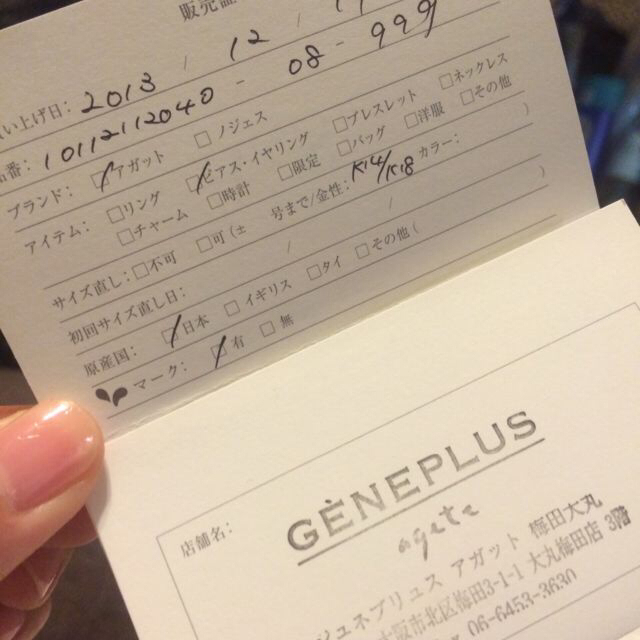 販売証
い上げ日: 2013 / 12 /
品番: 10112112040 - 08 - 999
ブランド: ☑アガット □ノジェス
アイテム: □リング ☑ピアス・イヤリング □ブレスレット □ネックレス
□チャーム □時計 □限定 □バッグ □洋服 □その他
サイズ直し: □不可 □可(± 号まで/金性: K14/K18 カラー: )
初回サイズ直し日: / /
原産国: ☑日本 □イギリス □タイ □その他( )
マーク: ☑有 □無
店舗名:
GÈNEPLUS
agete
ジュネプリュス アガット 梅田大丸
大阪市北区梅田3-1-1 大丸梅田店 3階
06-6453-3630